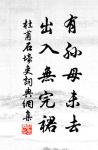 有孙母未去
出入无完裙
杜甫石壕吏词典网集